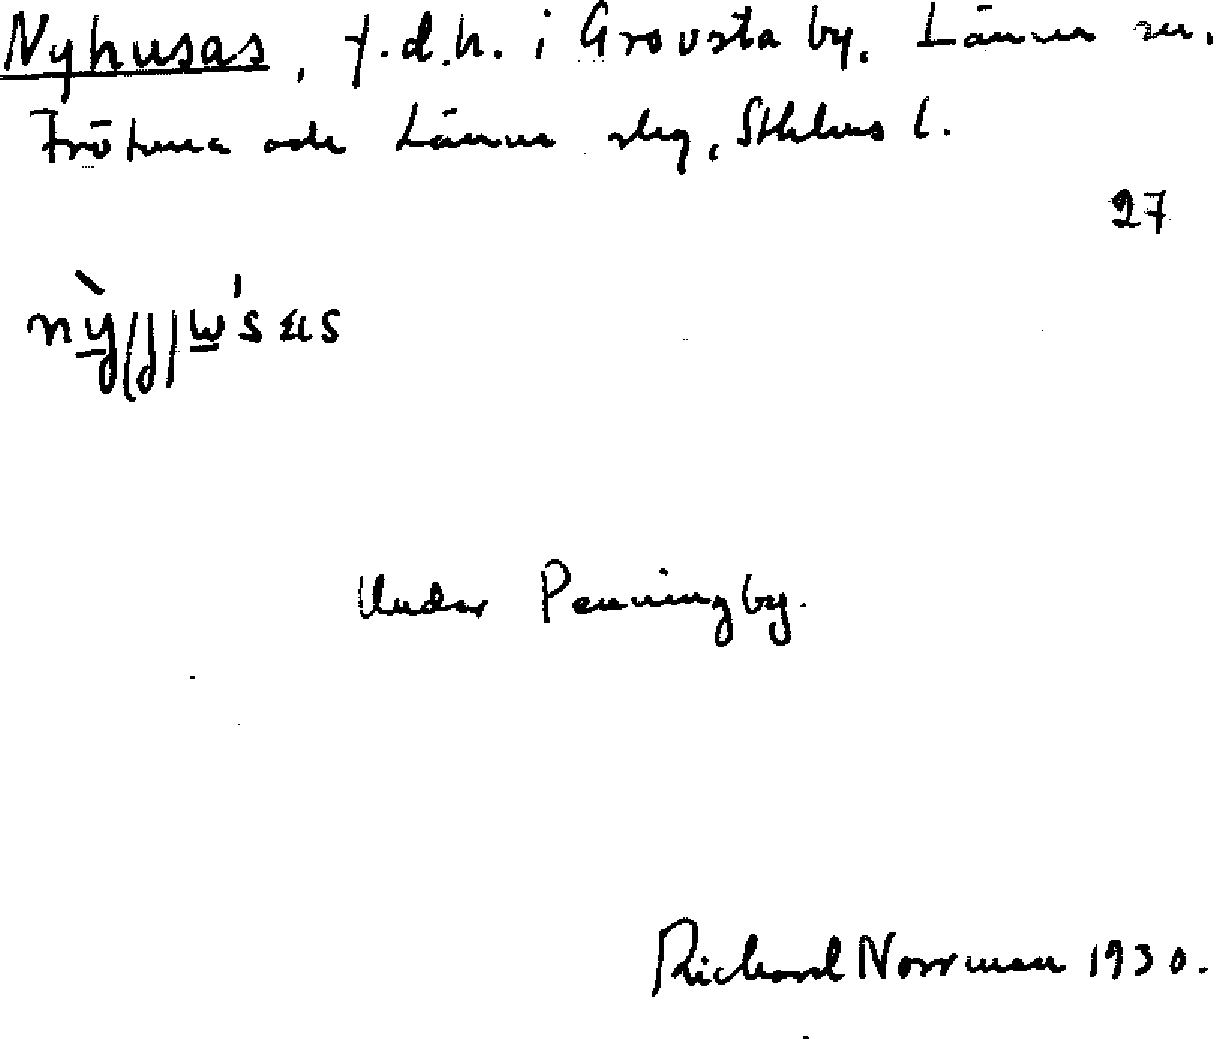 Nyhusas, f.d.h. i Grovsta by. Länna sn.
Frötuna och Länna slg, Sthlms l.
27
Under Penningby.
Richard Norrman 1930.